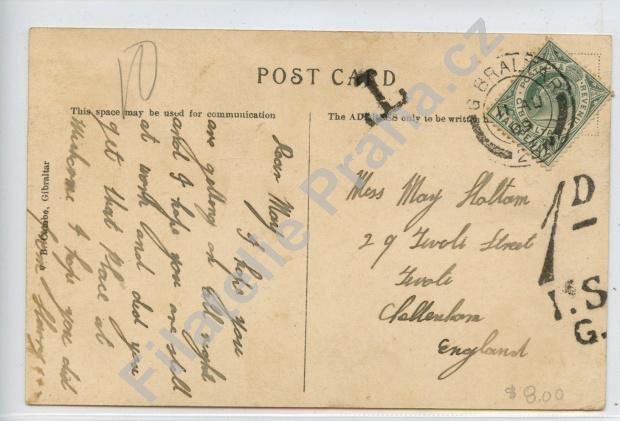 POST CARD
This space may be used for communication
The ADDRESS only to be written
L
GIBRALTAR
Dear May I hope you
are getting on all right
and I hope you are still
at work and did you
get that Place at
I hope you did
Miss May
29 Tivoli Street
Tivoli
Cheltenham
England
D
1
I.S.
G.
V. B. Cumbo, Gibraltar
$ 8.00
Filatelie Praha.cz